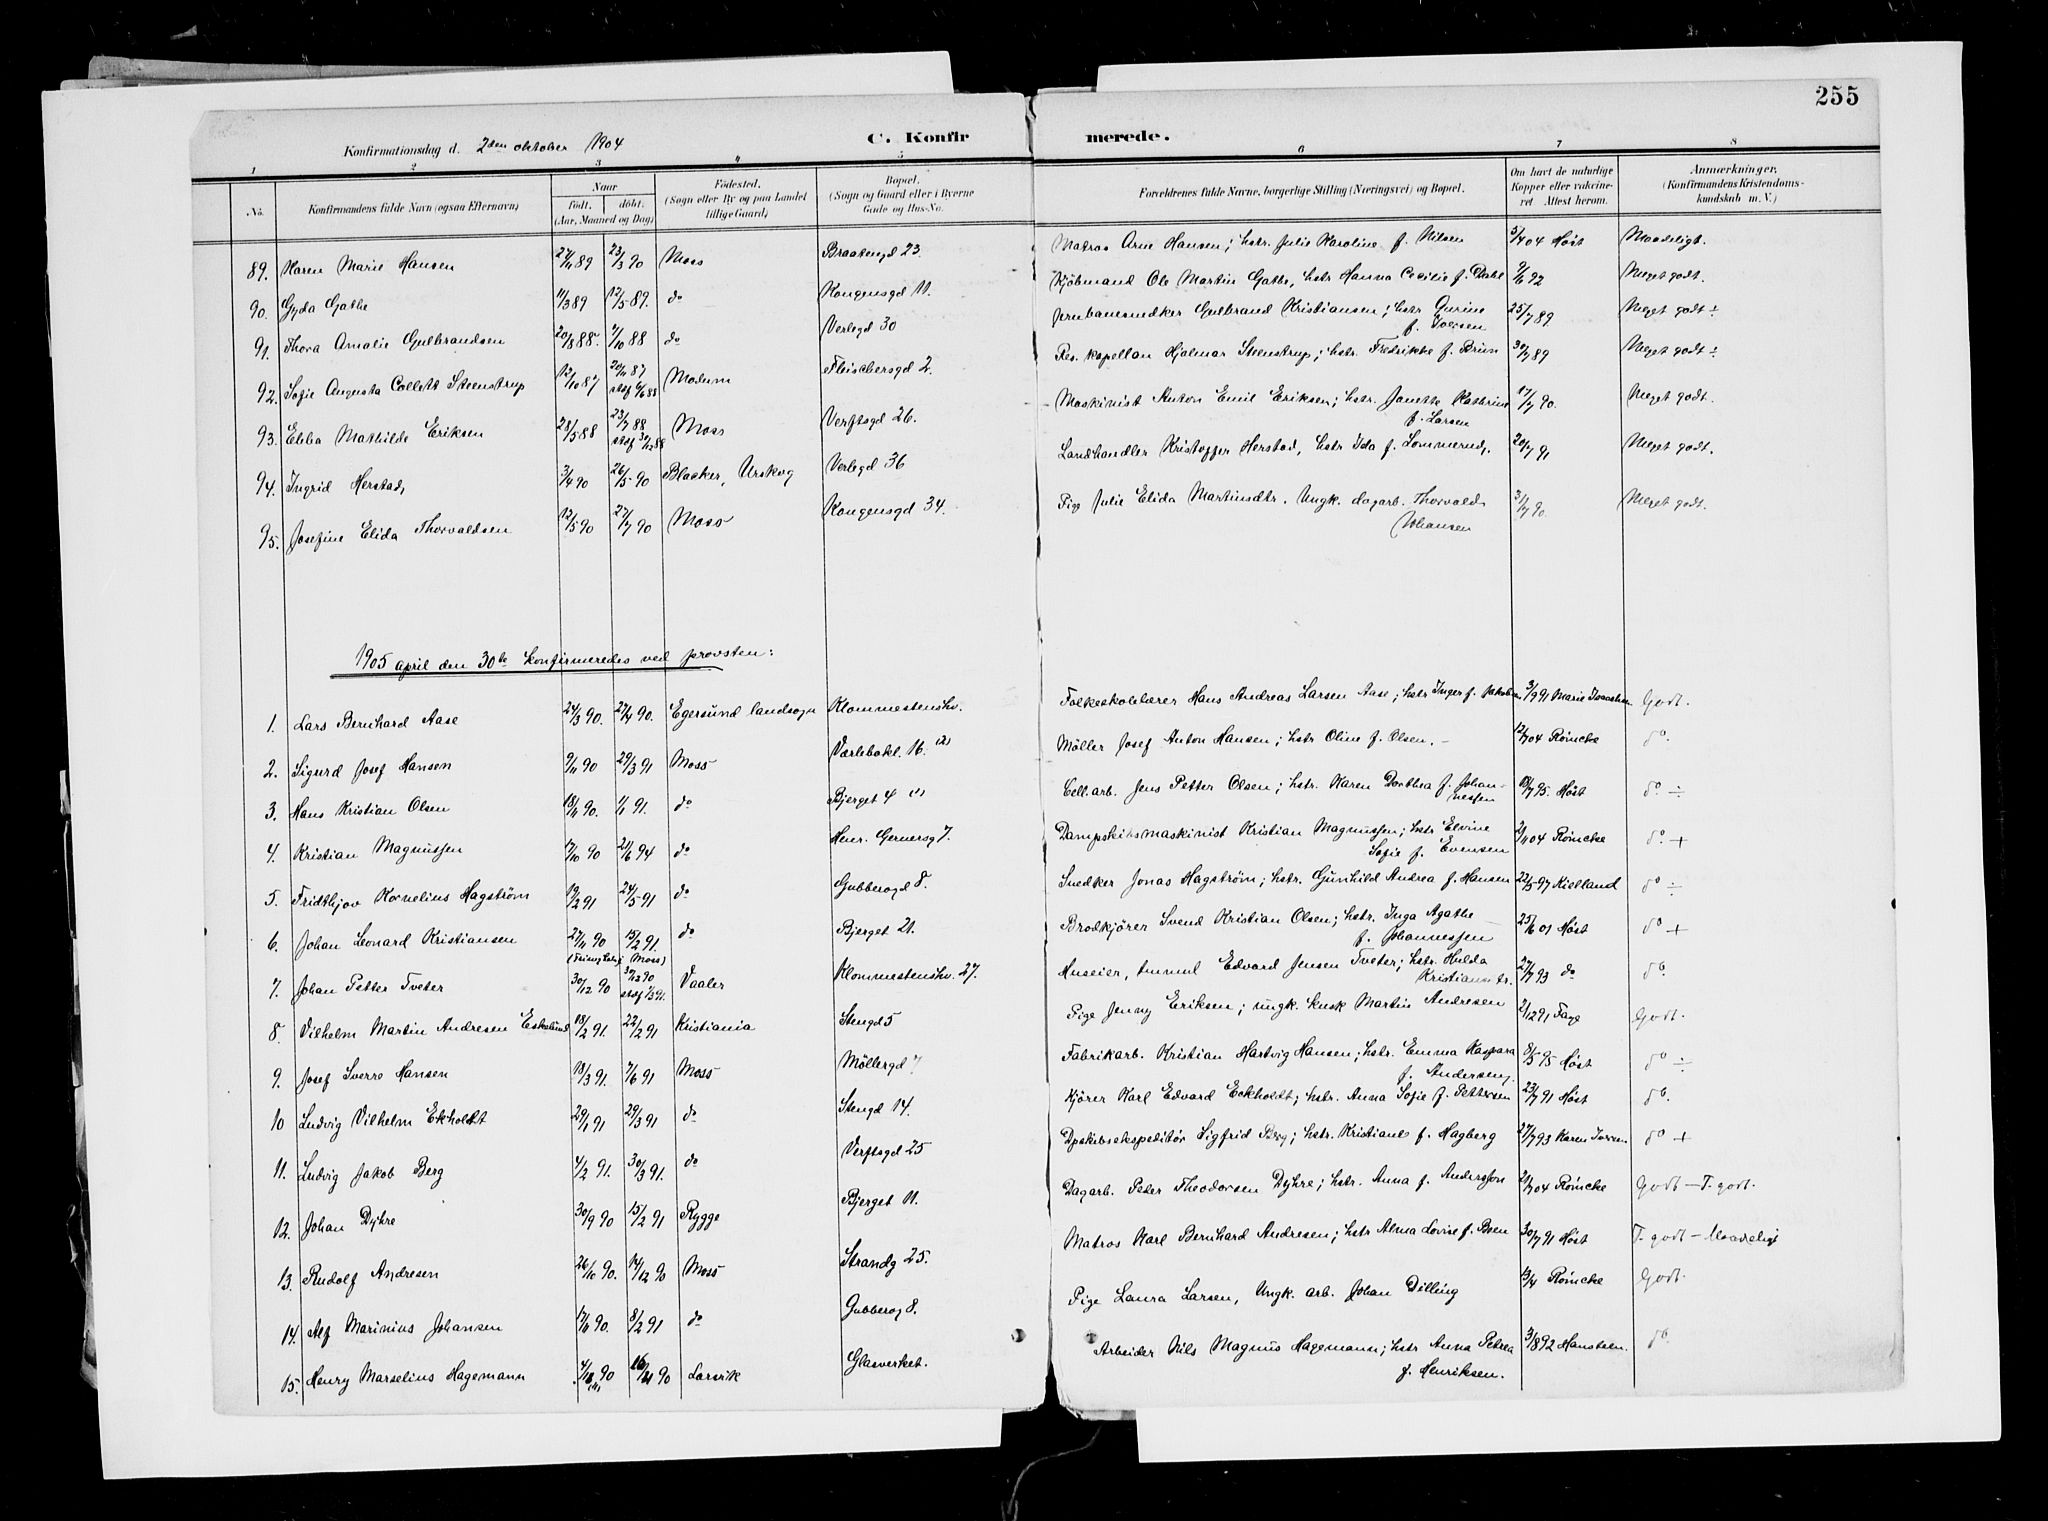 255
Konfirmationsdag d. 2den oktober 1904 C. Konfirmerede.
1 2 3 4 5 6 7 8
No. Konfirmandens fulde Navn (ogsaa Efternavn) Naar födt. döbt. (Aar, Maaned og Dag) Födested. (Sogn eller By og paa Landet tillige Gaard) Bopæl. (Sogn og Gaard eller i Byerne Gade og Hus-No. Forældrenes fulde Navne, borgerlige Stilling (Næringsvei) og Bopæl. Om havt de naturlige Kopper eller vaccineret. Attest herom. Anmærkninger, (Konfirmandens Kristendomskundskab m. V.)
89. Karen Marie Hansen 27/11 89 23/3 90 Moss Braatengd 23. Matros Arne Hansen; hstr. Julie Karoline f. Nilsen 5/4 04 Høst Maadeligt.
90. Gyda Gathe 11/3 89 12/5 89. do Kongensgd 11. Kjöbmand Ole Martin Gathe, hstr Hanna Cecilie f. Dahl 9/6 92 Meget godt.
91. Thora Amalie Gulbrandsen 20/8 88 7/10 88 do Verlegd 30 Jernbanesnedker Gulbrand Kristiansen; hstr Gurine f. Iversen 25/7 89 Meget godt ÷
92. Sofie Augusta Collett Steenstrup 12/10 87 20/11 87 stsf 6/6 88 Modum Fleischersgd 2. Res. kapellan Hjalmar Steenstrup; hstr. Fredrikke f. Brun 30/7 89 Meget godt ÷
93. Ebba Mathilde Eriksen 28/5 88 23/7 88 stsf 30/12 88 Moss Verftsgd 26. Maskinist Anton Emil Eriksen; hstr. Janette Kathrine f. Larsen 17/7 90. Meget godt.
94. Ingrid Herstad, 3/4 90 26/5 90 Blacker, Urskog Verlegd 36 Landhandler Kristoffer Herstad, hstr Ida f. Lommerud, 20/7 91 Meget godt.
95. Josefine Elida Thorvaldsen 12/5 90 27/7 90 Moss Kongensgd 34. Pige Julie Elida Martinsdtr. Ungk. dagarb. Thorvald Johansen 31/7 90. Meget godt.
1905 april den 30te konfirmeredes ved provsten:
1. Lars Bernhard Aase 24/3 90. 27/4 90. Egersund landsogn Klommestenshv. Folkeskolelærer Hans Andreas Larsen Aase; hstr Inger f. Jakobsen 3/9 91 Marie Godt.
2. Sigurd Josef Hansen 9/11 90 29/3 91 Moss Værlebakk. 16. (2) Möller Josef Anton Hansen; hstr Oline f. Olsen. 12/7 04 Römcke do.
3. Hans Kristian Olsen 18/11 90. 1/1 91. do Bjerget 4 (1) Cell.arb. Jens Petter Olsen; hstr. Karen Dorthea f. Johannessen 18/7 95. Høst do ÷
4. Kristian Magnussen 17/10 90 21/6 94 do Henr. Gernersg 7. Dampskibsmaskinist Kristian Magnussen; hstr Elvine Sofie f. Evensen 21/11 04 Römcke do. +
5. Fridthjov Kornelius Hagström 19/2 91 24/5 91 do Gubberogd 8. Snedker Jonas Hagström; hstr. Gunhild Andrea f. Hansen 22/5 97 Kielland do ÷
6. Johan Leonard Kristiansen 27/11 90 15/2 91. do Bjerget 21. Brodkjörer Svend Kristian Olsen; hstr. Inga Agathe f. Johannessen 25/6 01 Høst do +
7. Johan Petter Tveter 30/12 90 31/12 90 stsf 1/3 91. (Moss) Vaaler Klommestenshv. 27. Huseier, Edvard Jensen Tveter; hstr. Hulda Kristiansdtr. 27/7 93 do do.
8. Vilhelm Martin Andresen Eskelund 18/2 91. 22/2 91 Kristiania Stengd 5 Pige Jenny Eriksen; ungk. kusk Martin Andresen 2/12 91 Faye Godt.
9. Josef Sverre Hansen 13/3 91. 7/6 91 Moss Möllergd 7 Fabrikarb. Kristian Hartvig Hansen; hstr. Emma Kaspara f. Andersen 8/5 95 Høst do ÷
10 Ludvig Vilhelm Ekholdt 29/1 91 29/3 91 do Stengd 14. Kjörer Karl Edvard Eckholdt; hstr. Anna Sofie f. Pettersen 23/7 91 Høst do.
11. Ludvig Jakob Berg 4/2 91. 30/3 91. do Verftsgd 25 Dpskibsekspeditör Sigfrid Berg; hstr. Kristiane f. Hagberg 27/7 93 Karen Iversen do +
12. Johan Dyhre 30/9 90 15/2 91 Rygge Bjerget 11. Dagarb. Peter Theodorsen Dyhre; hstr. Anna f. Andersson 21/7 04 Römcke Godt - T. godt.
13. Rudolf Andresen 26/10 90. 14/12 90 Moss Strandg 25. Matros Karl Bernhard Andresen; hstr Alma Lovise f. Buen 30/7 91 Høst T. godt - Maadelig
14. Alf Marinius Johansen 17/11 90. 8/2 91 do Gubberog 8. Pige Laura Larsen, Ungk. arb. Johan Dilling 13/4 Römcke Godt.
15. Henry Marselius Hagemann 4/10 90 16/11 90 Larvik Glasverket. Arbeider Nils Magnus Hagemann; hstr Anna Petrea f. Henriksen. 3/8 92 Hansteen. do.